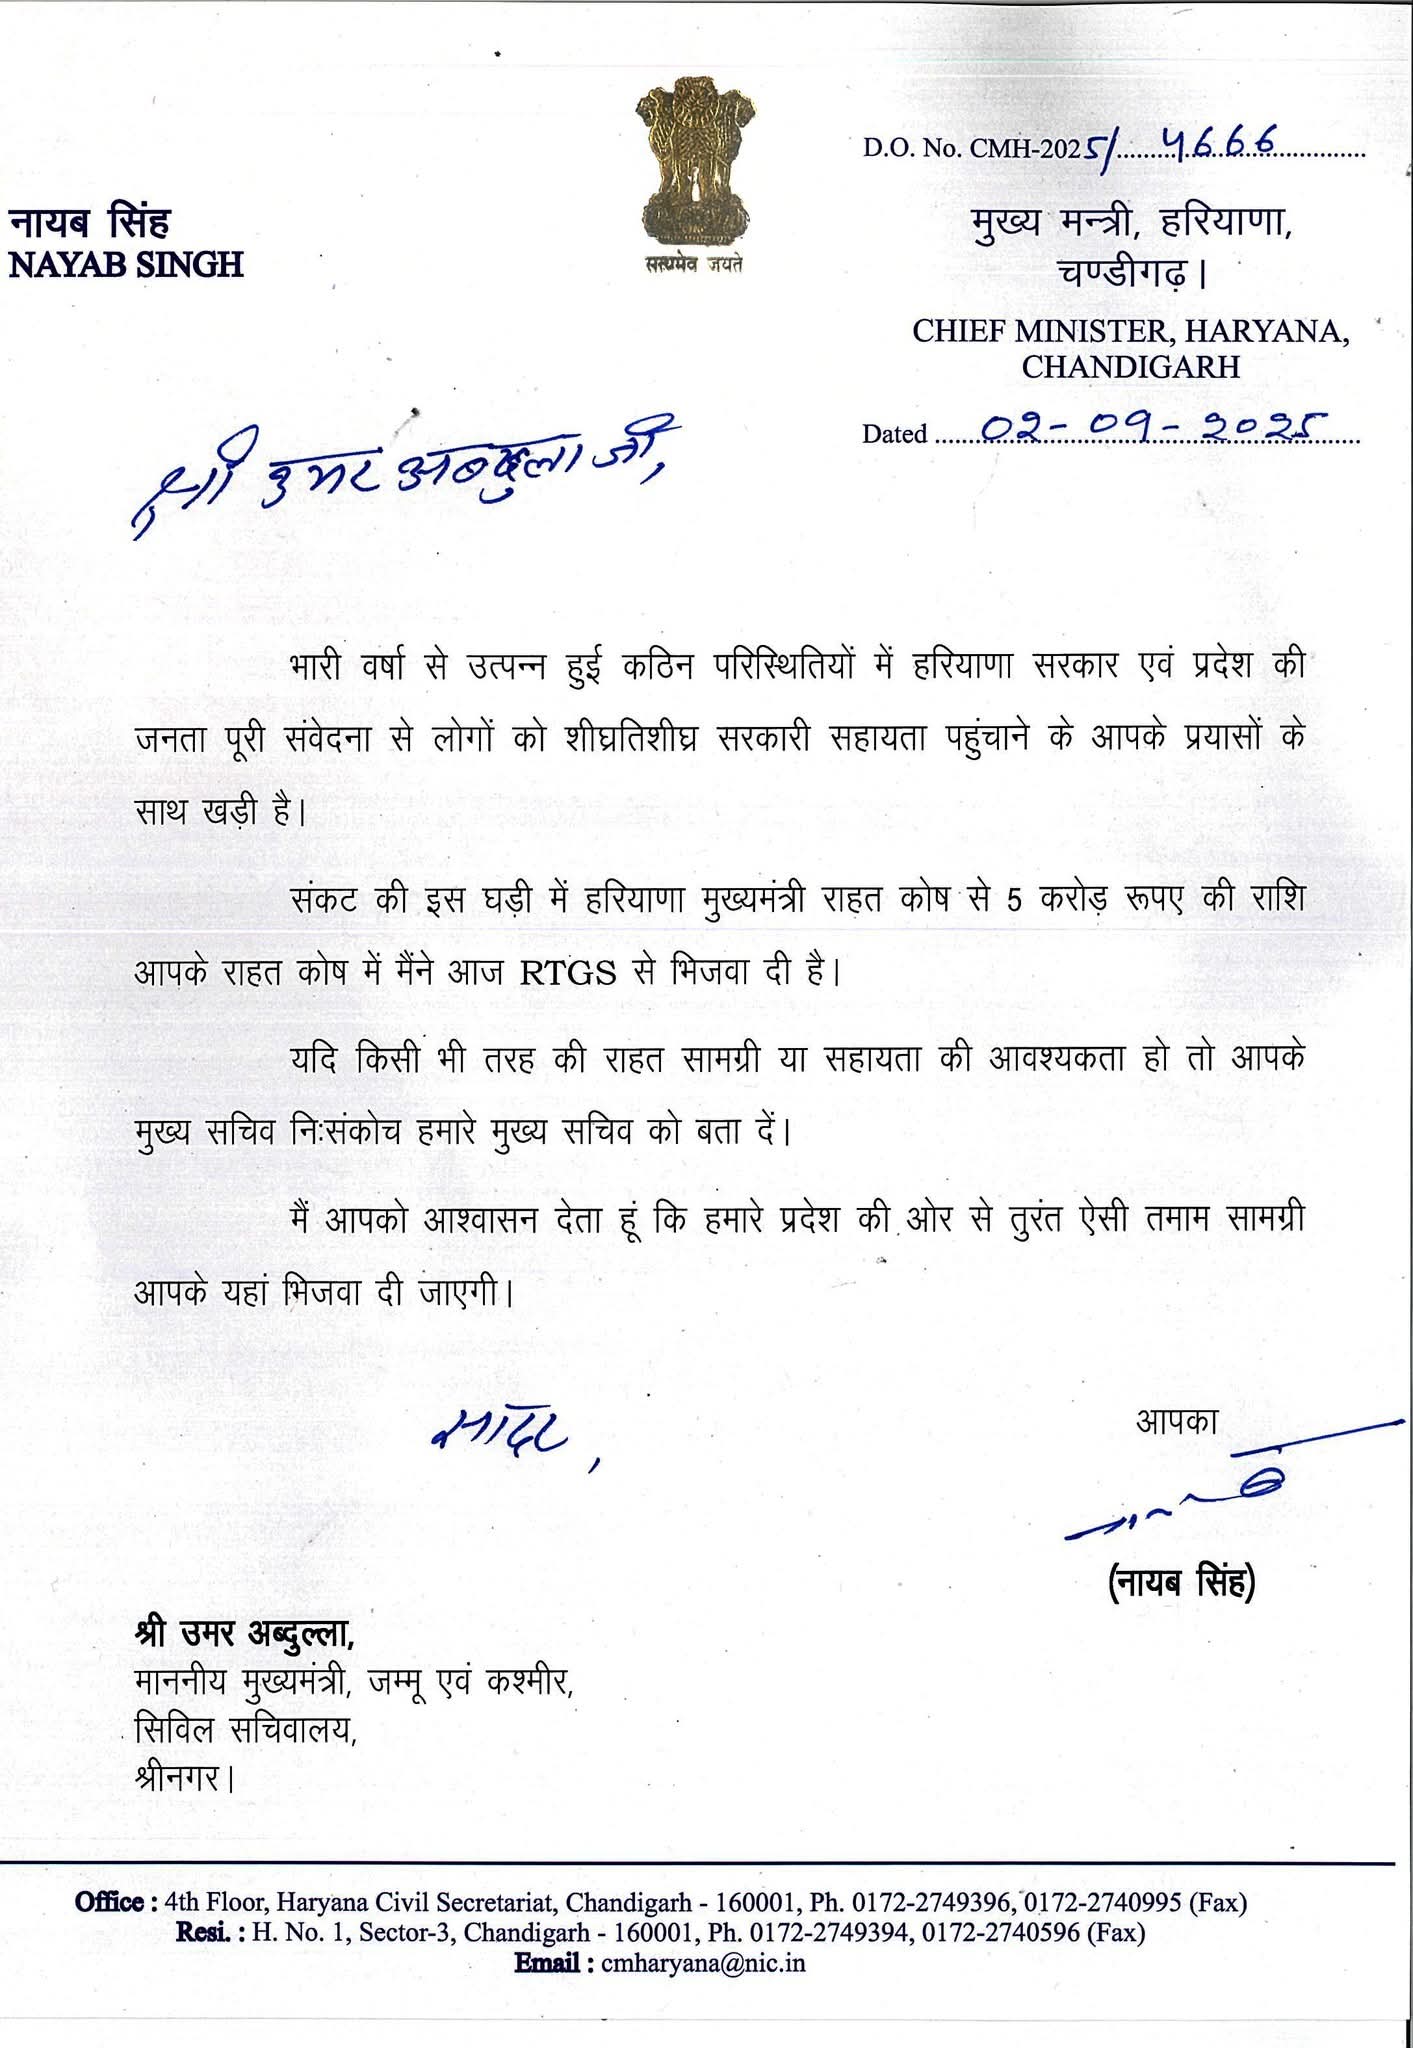 D.O. No. CMH-2025/ 4666
नायब सिंह
NAYAB SINGH
सत्यमेव जयते
मुख्य मन्त्री, हरियाणा,
चण्डीगढ़।
CHIEF MINISTER, HARYANA,
CHANDIGARH
Dated 02-09-2025
श्री उमर अब्दुला जी,
भारी वर्षा से उत्पन्न हुई कठिन परिस्थितियों में हरियाणा सरकार एवं प्रदेश की
जनता पूरी संवेदना से लोगों को शीघ्रतिशीघ्र सरकारी सहायता पहुंचाने के आपके प्रयासों के
साथ खड़ी है।
संकट की इस घड़ी में हरियाणा मुख्यमंत्री राहत कोष से 5 करोड़ रूपए की राशि
आपके राहत कोष में मैंने आज RTGS से भिजवा दी है।
यदि किसी भी तरह की राहत सामग्री या सहायता की आवश्यकता हो तो आपके
मुख्य सचिव निःसंकोच हमारे मुख्य सचिव को बता दें।
मैं आपको आश्वासन देता हूं कि हमारे प्रदेश की ओर से तुरंत ऐसी तमाम सामग्री
आपके यहां भिजवा दी जाएगी।
सादर,
आपका
(नायब सिंह)
श्री उमर अब्दुल्ला,
माननीय मुख्यमंत्री, जम्मू एवं कश्मीर,
सिविल सचिवालय,
श्रीनगर।
Office : 4th Floor, Haryana Civil Secretariat, Chandigarh - 160001, Ph. 0172-2749396, 0172-2740995 (Fax)
Resi. : H. No. 1, Sector-3, Chandigarh - 160001, Ph. 0172-2749394, 0172-2740596 (Fax)
Email : cmharyana@nic.in